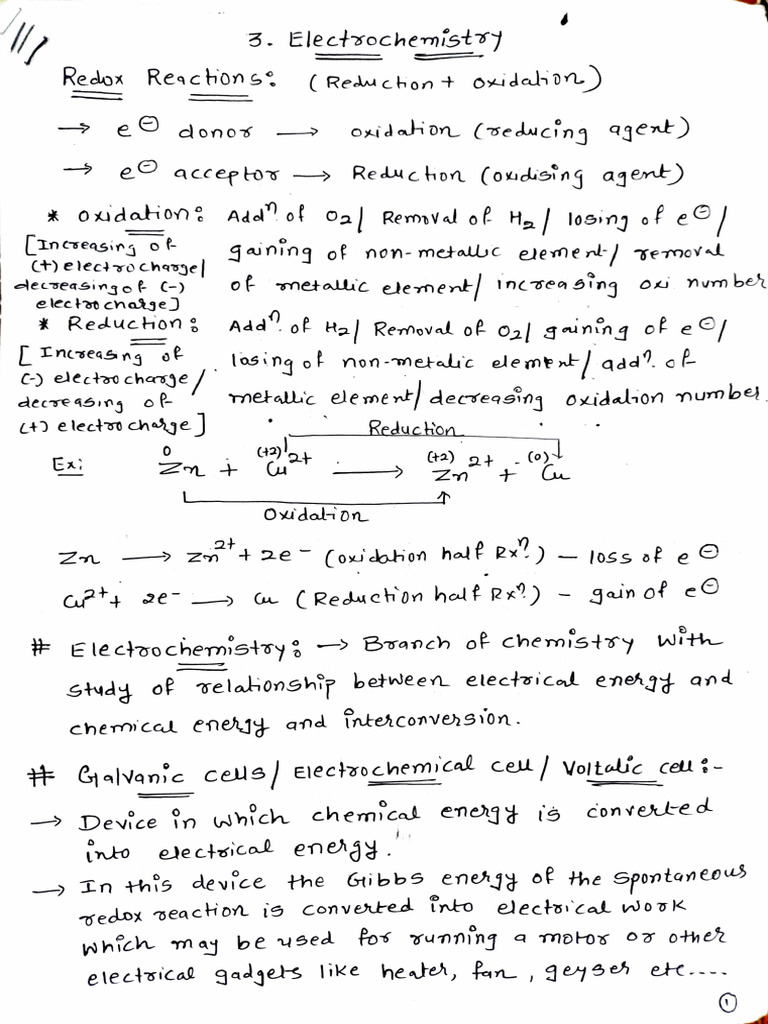 3. Electrochemistry
Redox Reactions: (Reduction + Oxidation)
→ e⊖ donor → oxidation (reducing agent)
→ e⊖ acceptor → Reduction (oxidising agent)
* Oxidation: Addⁿ of O2/ Removal of H2/ losing of e⊖/
[Increasing of (+) electrocharge/ decreasing of (-) electrocharge]
gaining of non-metallic element/ removal
of metallic element/ increasing oxi number
* Reduction: Addⁿ. of H2/ Removal of O2/ gaining of e⊖/
[Increasing of (-) electrocharge/ decreasing of (+) electrocharge]
losing of non-metalic element/ addⁿ. of
metallic element/ decreasing oxidation number.
Reduction
Ex: Zn (0) + Cu²⁺ (+2) → Zn²⁺ (+2) + Cu (0)
Oxidation
Zn → Zn²⁺ + 2e- (oxidation half Rxⁿ.) – loss of e⊖
Cu²⁺ + 2e- → Cu (Reduction half Rxⁿ.) – gain of e⊖
# Electrochemistry: → Branch of chemistry with
study of relationship between electrical energy and
chemical energy and interconversion.
# Galvanic cells/ Electrochemical cell/ Voltalic cell:-
→ Device in which chemical energy is converted
into electrical energy.
→ In this device the Gibbs energy of the spontaneous
redox reaction is converted into electrical work
which may be used for running a motor or other
electrical gadgets like heater, fan, geyser etc.....
1